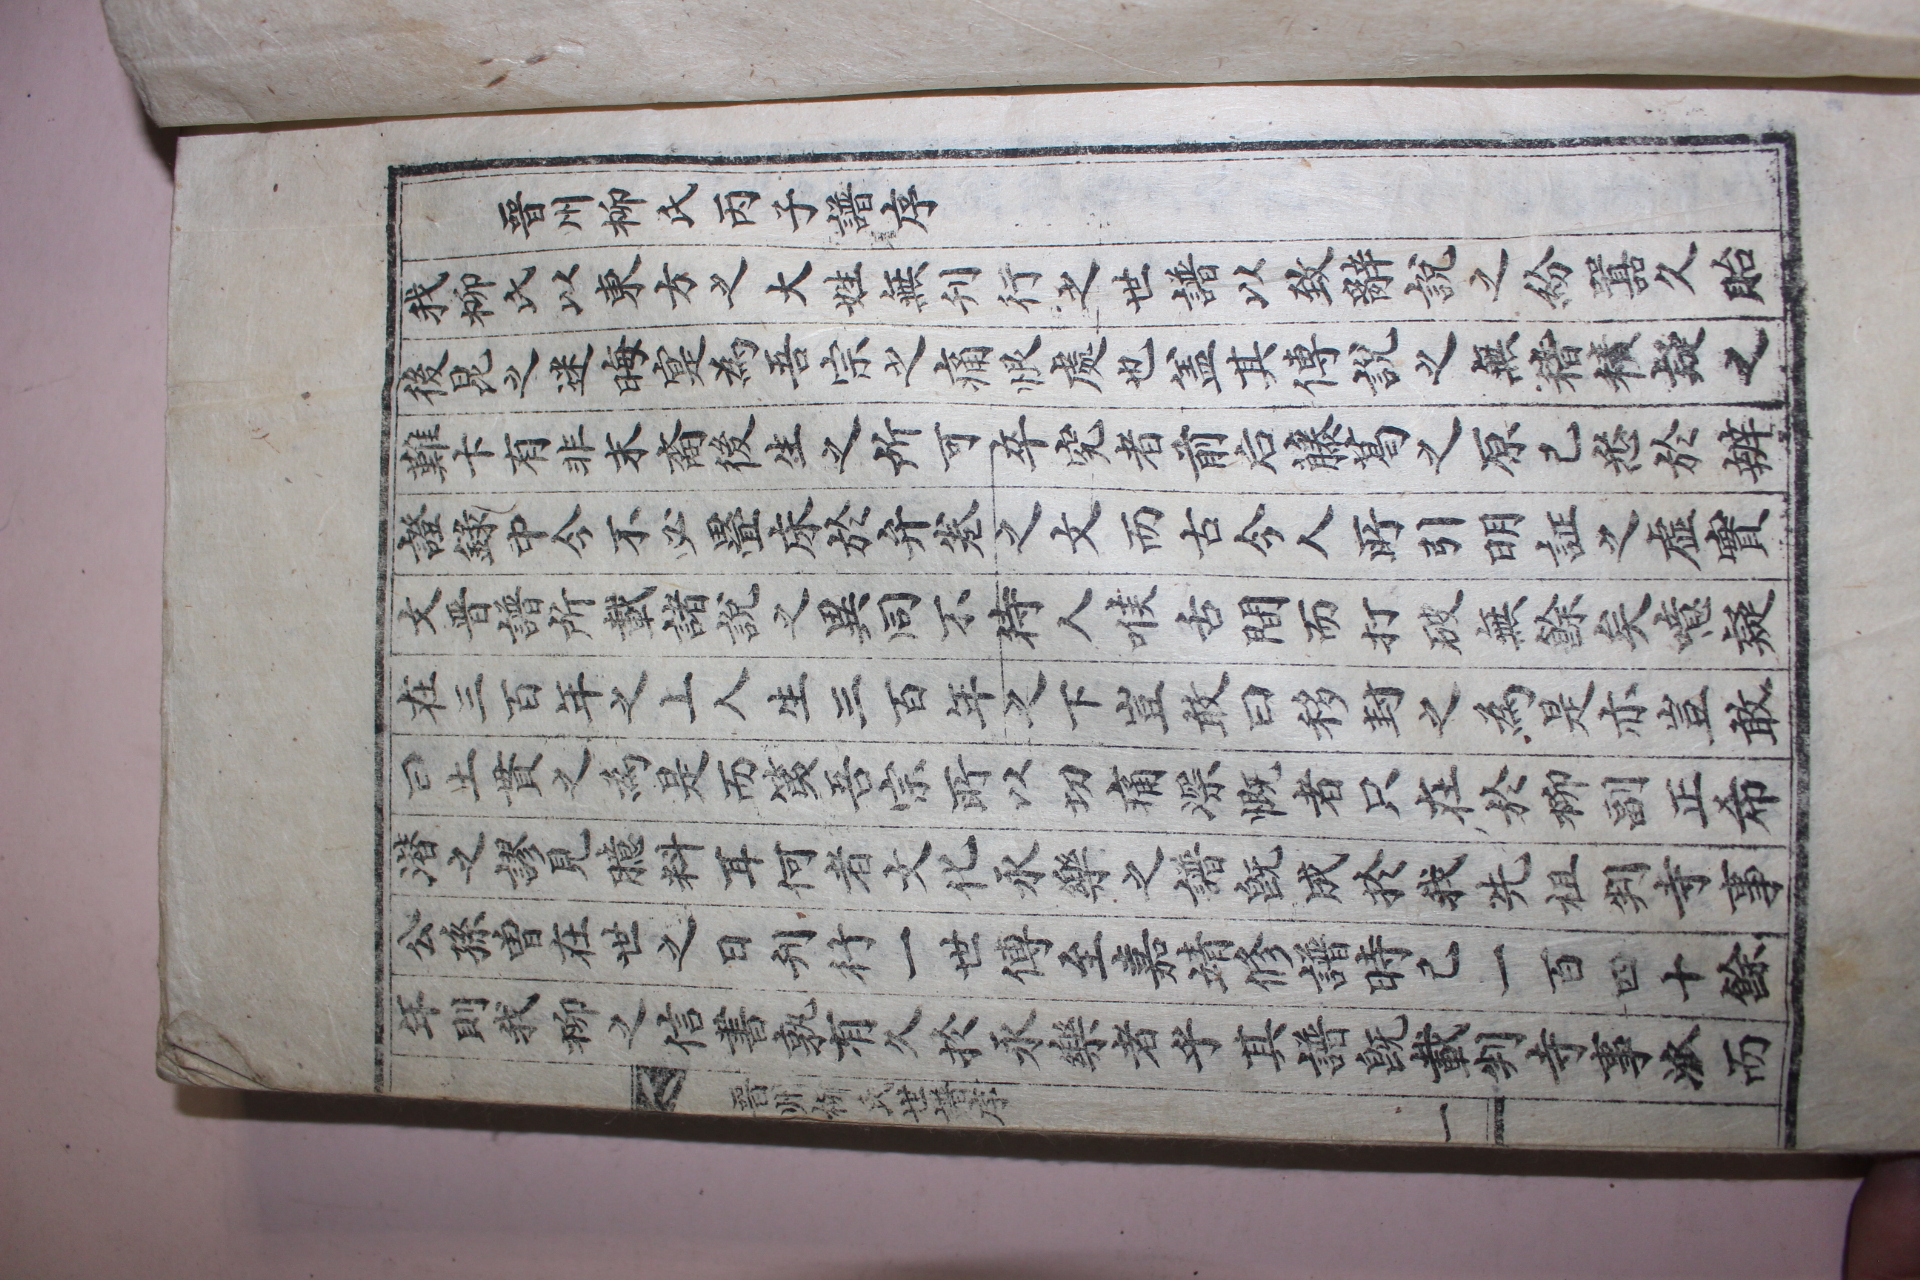 晋州柳氏丙子譜序
我柳氏以東方之大姓無刋行之世譜以致辭說之紛囂久貽
後昆之迷晦寔為吾宗之痛恨處也盖其傳說之無稽積疑之
難卞有非末裔後生之所可卒究者前后藤葛之原已悉於辨
證錄中今不必疊床於弁卷之文而古今人所引明証之虛實
文晋譜所載諸說之異同不待人喉舌間而打破無餘矣噫疑
在三百年之上人生三百年之下豈敢曰移封之為是亦豈敢
曰土貫之為是而第吾宗所以切痛深慨者只在於柳副正希
潜之謬見臆料耳何者文化永樂之譜旣成於我先祖判寺事
公孫曾在世之日刋行一世傳至嘉靖修譜時已一百四十餘
年則我柳之信書孰有久於永樂者乎其譜旣載判寺事派而
晋州柳氏世譜序
一